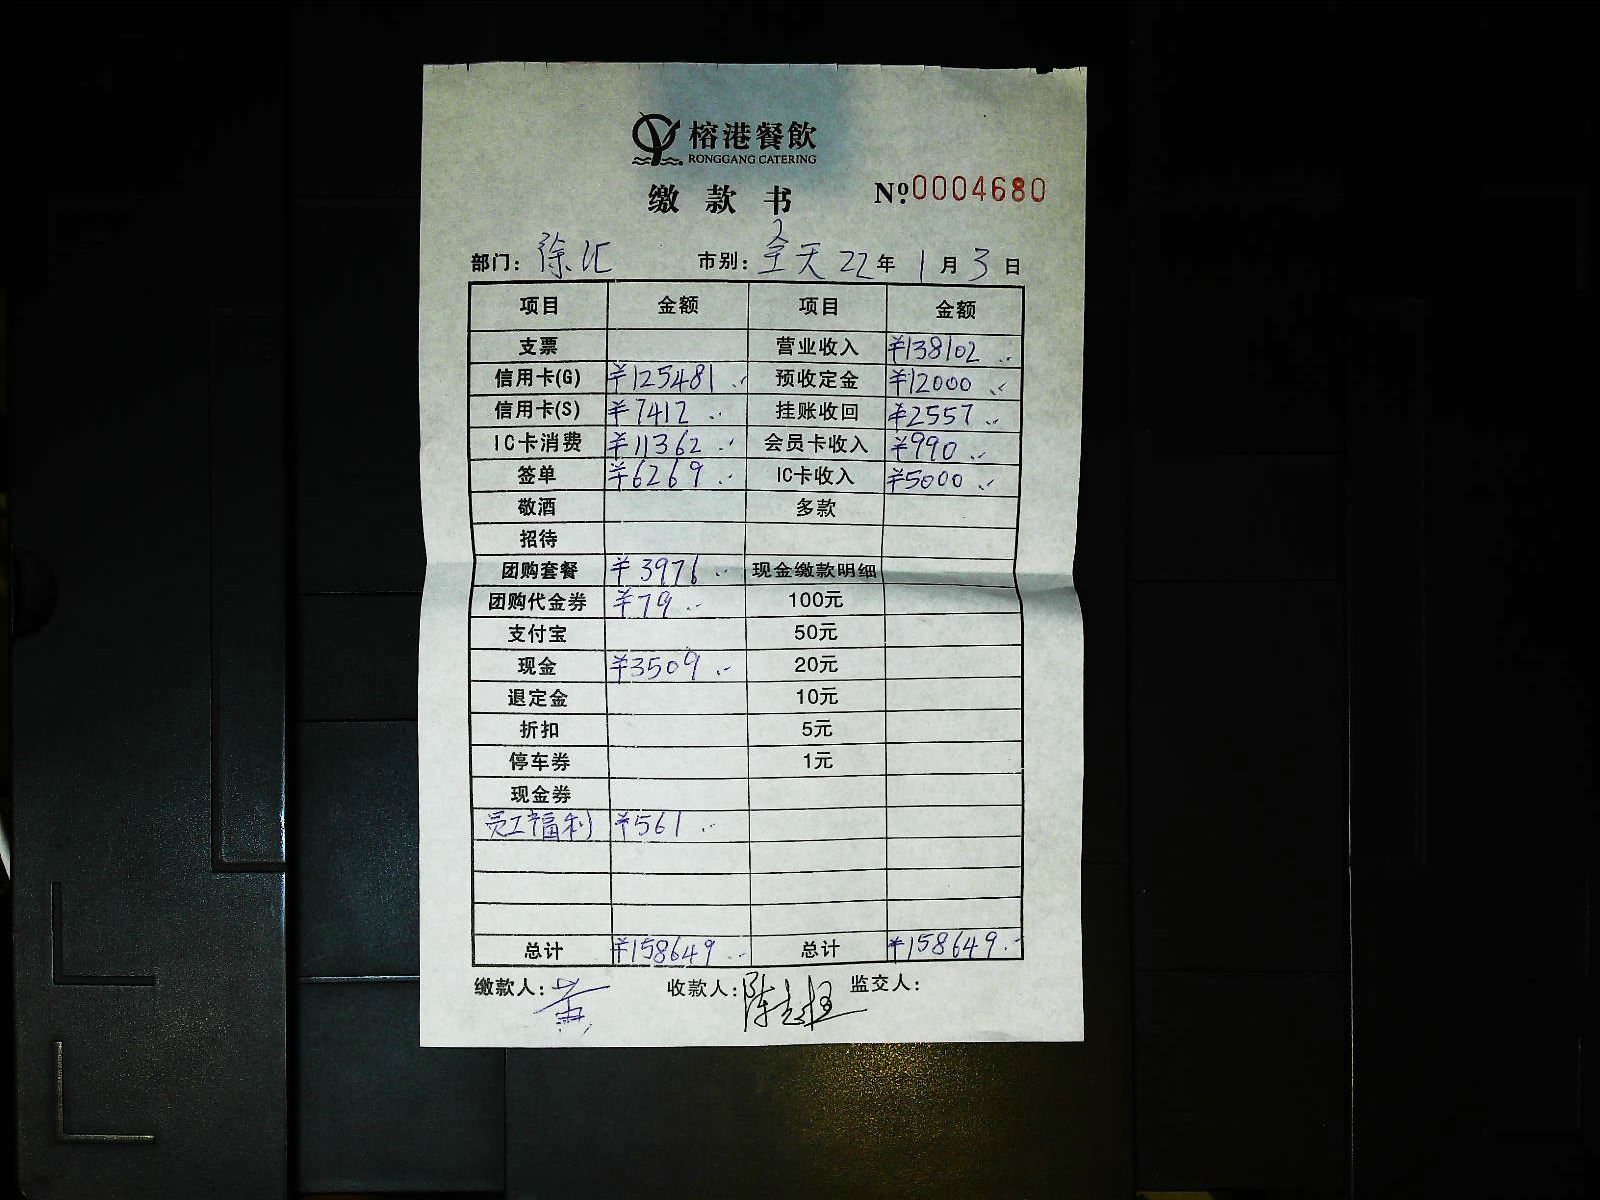 榕港餐飲
RONGGANG CATERING
缴款书 Nº 0004680
部门：徐汇 市别：全天 22年 1月 3日
项目 金额 项目 金额
支票 营业收入 ¥138102.-
信用卡(G) ¥125481.- 预收定金 ¥12000.-
信用卡(S) ¥7412.- 挂账收回 ¥2557.-
IC卡消费 ¥11362.- 会员卡收入 ¥990.-
签单 ¥6269.- IC卡收入 ¥5000.-
敬酒 多款
招待
团购套餐 ¥3976.- 现金缴款明细
团购代金券 ¥79.- 100元
支付宝 50元
现金 ¥3509.- 20元
退定金 10元
折扣 5元
停车券 1元
现金券
员工福利 ¥561.-
总计 ¥158649.- 总计 ¥158649.-
缴款人：黄 收款人：陈 监交人：